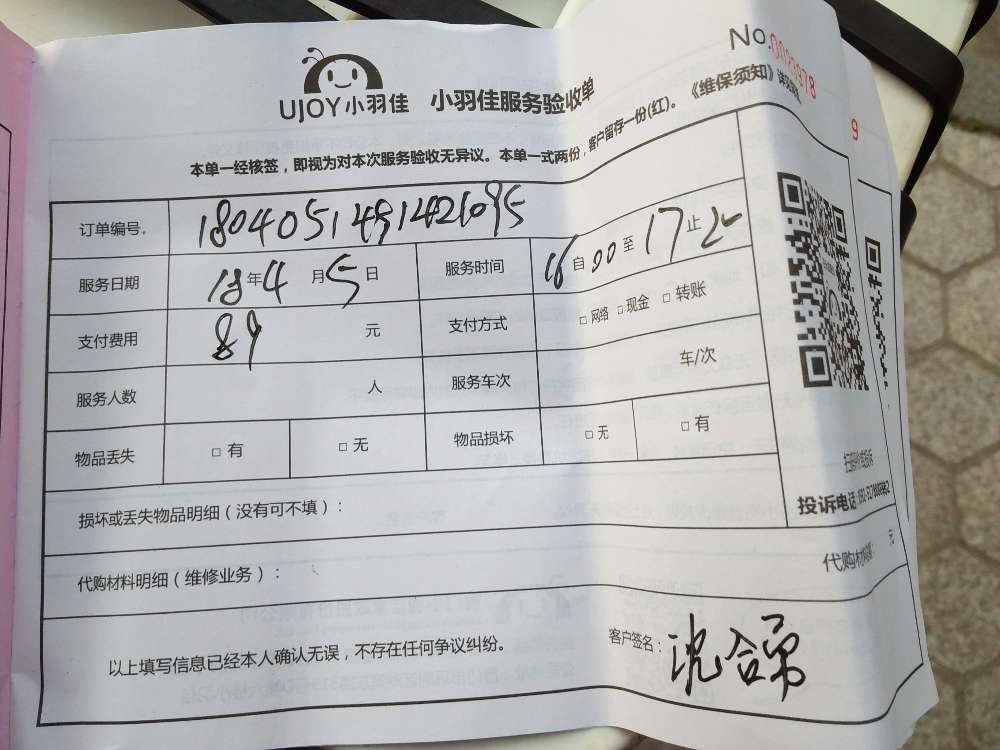 UJOY小羽佳 小羽佳服务验收单
本单一经核签，即视为对本次服务验收无异议。本单一式两份，客户留存一份(红)。《维保须知》
订单编号。
服务日期 18年4月5日 服务时间 16自00至17止2
支付费用 89元 支付方式 □ 网络 □ 现金 □ 转账
服务人数 人 服务车次 车/次
物品丢失 □ 有 □ 无 物品损坏 □ 无 □ 有
投诉电话
损坏或丢失物品明细（没有可不填）：
代购材料明细（维修业务）： 元
以上填写信息已经本人确认无误，不存在任何争议纠纷。 客户签名：